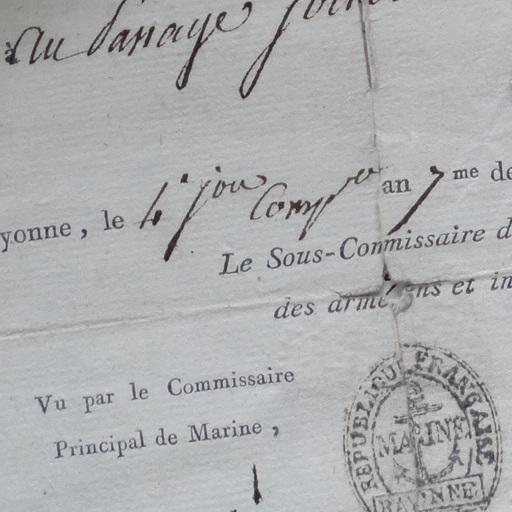 au passage
yonne, le 4e jour Comp.re an 7 me de
Le Sous-Commissaire d
des armé ns et in
Vu par le Commissaire
Principal de Marine,
REPUBLIQUE FRANÇAISE
MARINE
BAYONNE